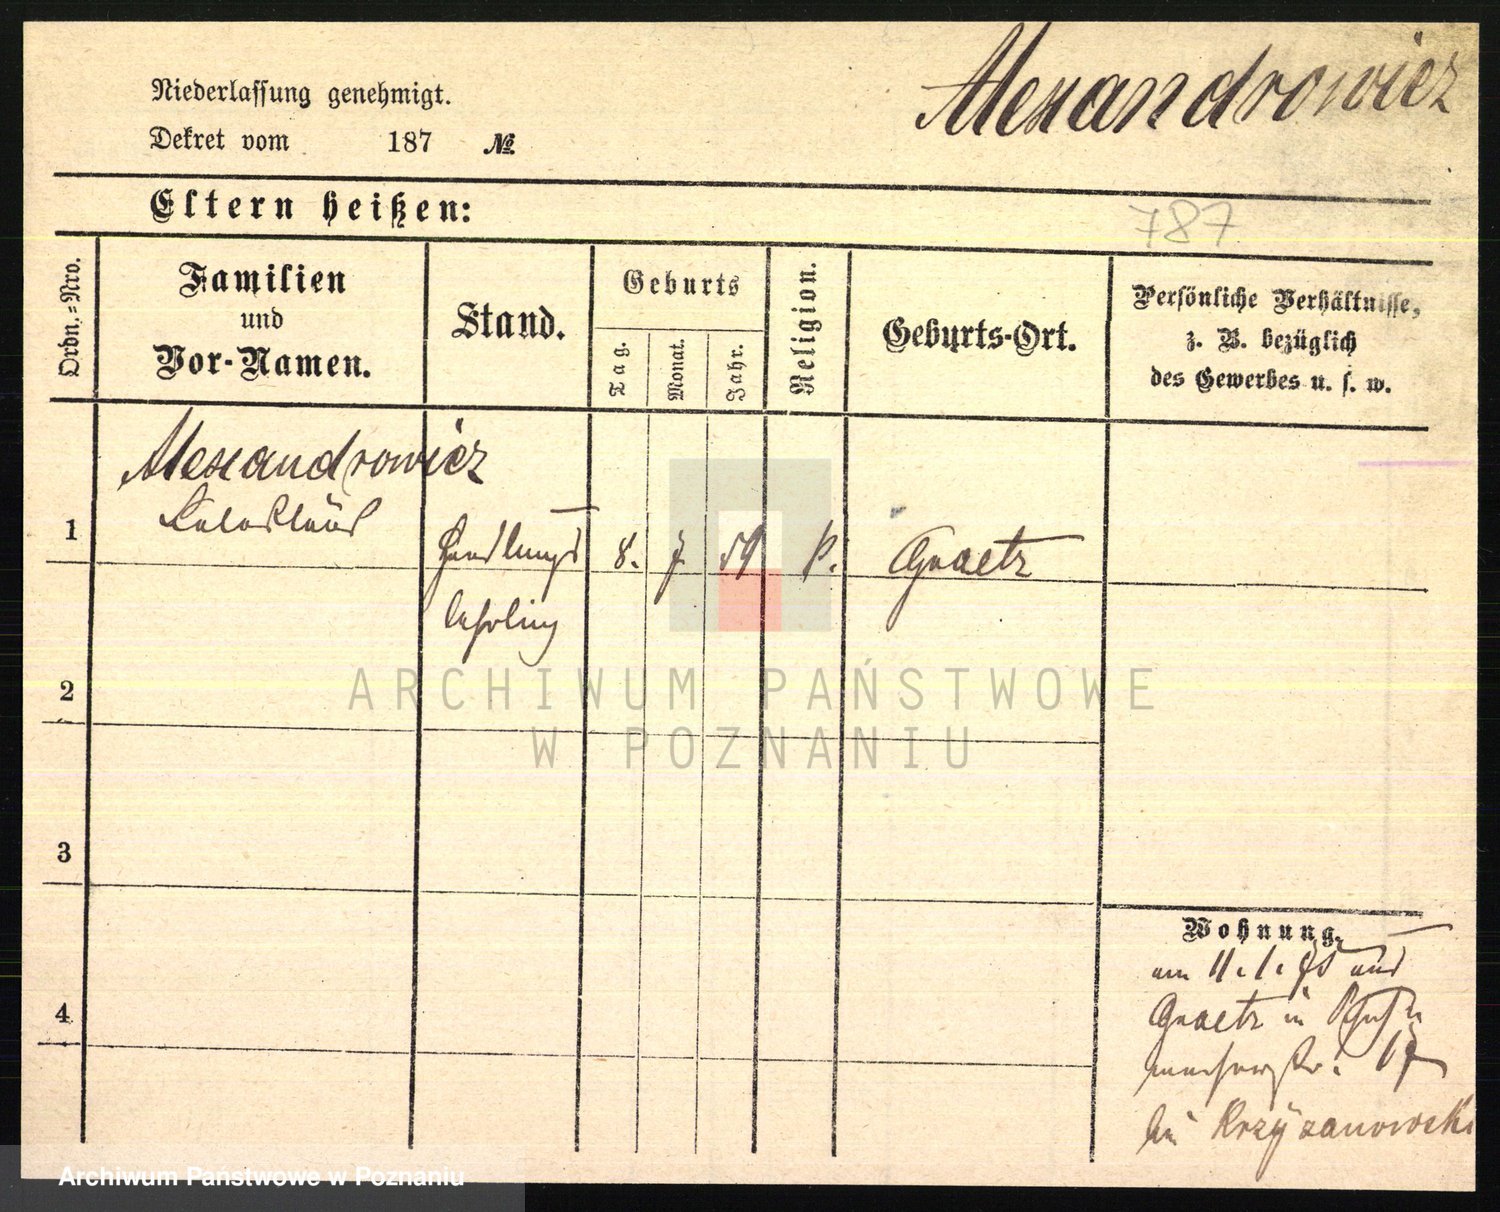 Alexandrowicz
Niederlassung genehmigt.
Dekret vom 187 №
787
Eltern heißen:
Ordn.-Nro.
Familien
und
Vor-Namen.
Stand.
Geburts
Tag.
Monat.
Jahr.
Religion.
Geburts-Ort.
Persönliche Verhältnisse,
z. B. bezüglich
des Gewerbes u. s. w.
Alexandrowicz
1 Handlungs 8. 7 59 k. Graetz
lehrling
2
3
4
Wohnung.
am 11. 1. 75 aus
Graetz in Schuh
macherstr: 17
bei Krzyzanowski
ARCHIWUM PAŃSTWOWE
W POZNANIU
Archiwum Państwowe w Poznaniu